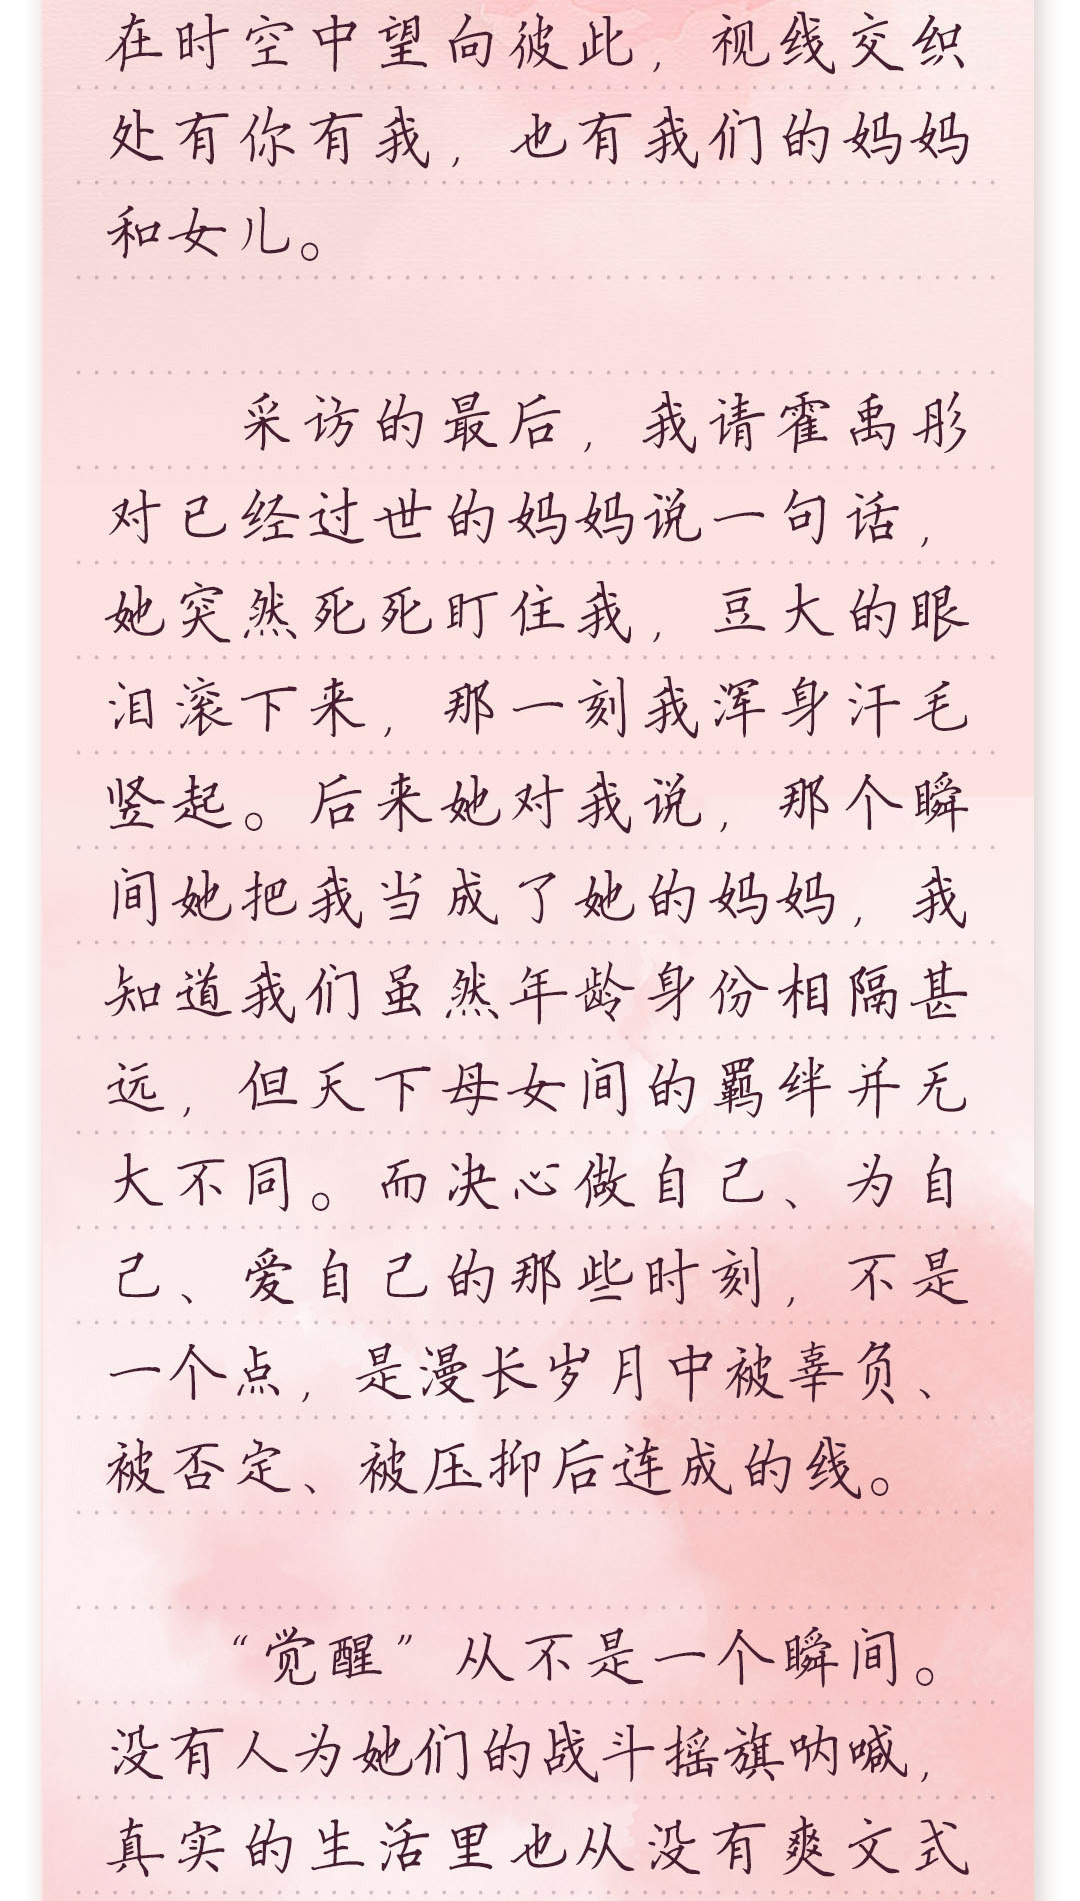 在时空中望向彼此，视线交织
处有你有我，也有我们的妈妈
和女儿。
采访的最后，我请霍禹彤
对已经过世的妈妈说一句话，
她突然死死盯住我，豆大的眼
泪滚下来，那一刻我浑身汗毛
竖起。后来她对我说，那个瞬
间她把我当成了她的妈妈，我
知道我们虽然年龄身份相隔甚
远，但天下母女间的羁绊并无
大不同。而决心做自己、为自
己、爱自己的那些时刻，不是
一个点，是漫长岁月中被辜负、
被否定、被压抑后连成的线。
“觉醒”从不是一个瞬间。
没有人为她们的战斗摇旗呐喊，
真实的生活里也从没有爽文式